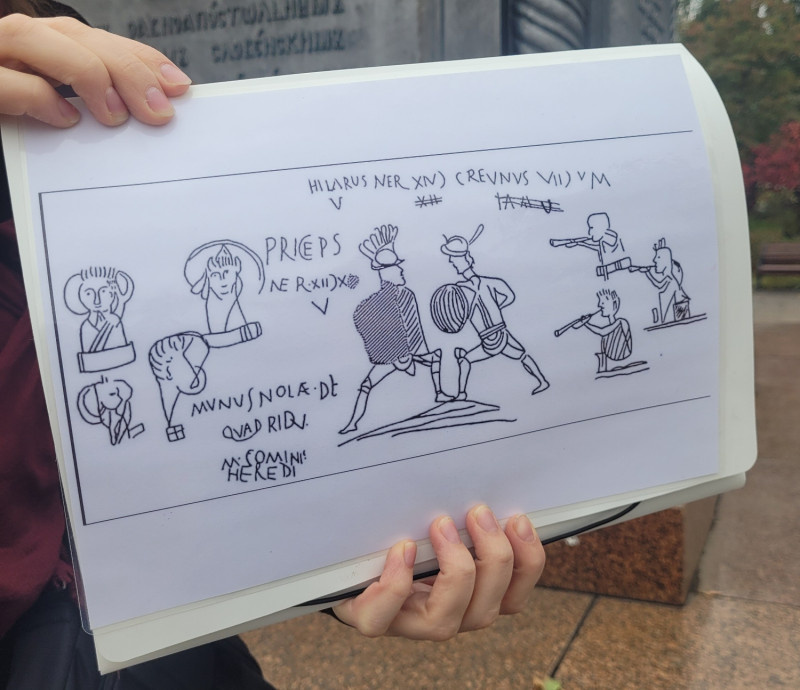 HILARUS NER XIV) CREVNVS VII) V M
V
PRICEPS
NER·XII)X
V
MVNUS NOLÆ·DE
QVADRIDV.
M·COMINI
HEREDI